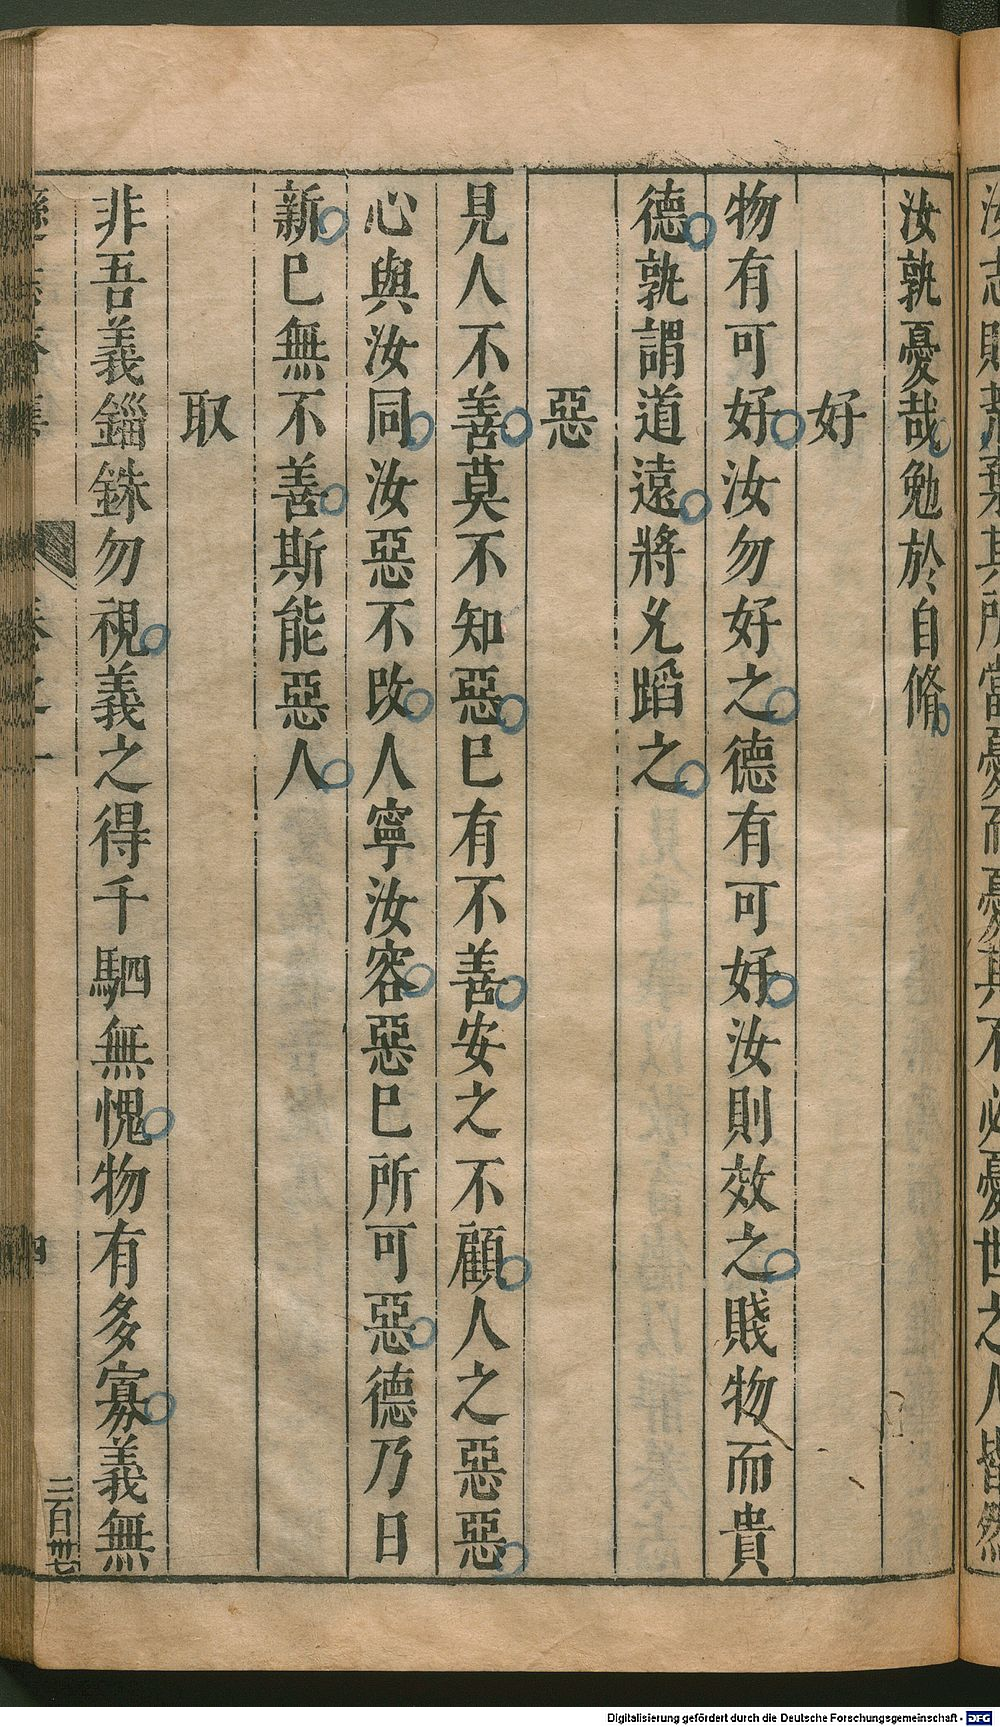 汝孰憂哉勉於自脩
好
物有可好汝勿好之德有可好汝則效之賤物而貴
德孰謂道遠將允蹈之
惡
見人不善莫不知惡巳有不善安之不顧人之惡惡
心與汝同汝惡不改人寧汝容惡巳所可惡德乃日
新巳無不善斯能惡人
取
非吾義錙銖勿視義之得千駟無愧物有多寡義無
三百卅七
Digitalisierung gefördert durch die Deutsche Forschungsgemeinschaft - DFG